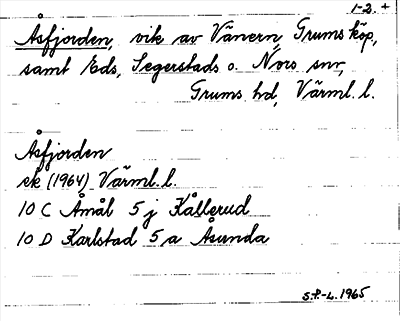 1-2. +
Åsfjorden, vik av Vänern, Grums köp,
samt Eds, Segerstads o. Nors snr,
Grums hd, Värml. l.
Åsfjorden
ek (1964) Värml. l.
10 C Åmål 5 j Kållerud
10 D Karlstad 5 a Åsunda
S.P.-L. 1965